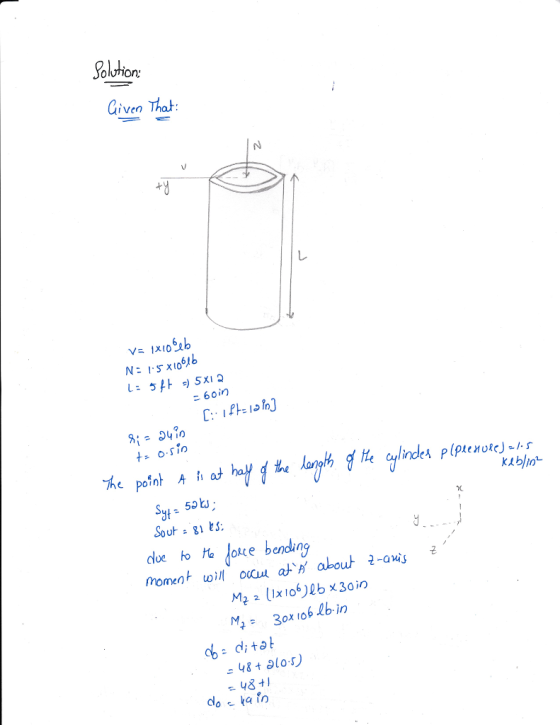 Solution:
Given That:
N
V
+y
L
V = 1x10⁶lb
N = 1.5x10⁶lb
L = 5ft ⇒ 5x12
= 60in
[∵ 1ft=12in]
ri = 24in
t = 0.5in
The point A is at half of the length of the cylinder p(pressure) = 1.5
klb/in²
Syt = 52ks;
Sout = 81 ks:
x
y
z
due to the force bending
moment will occur at 'A' about z-axis
Mz = (1x10⁶)lb x30in
Mz = 30x106 lb.in
do = di+2t
= 48 + 2(0.5)
= 48+1
do = 49in